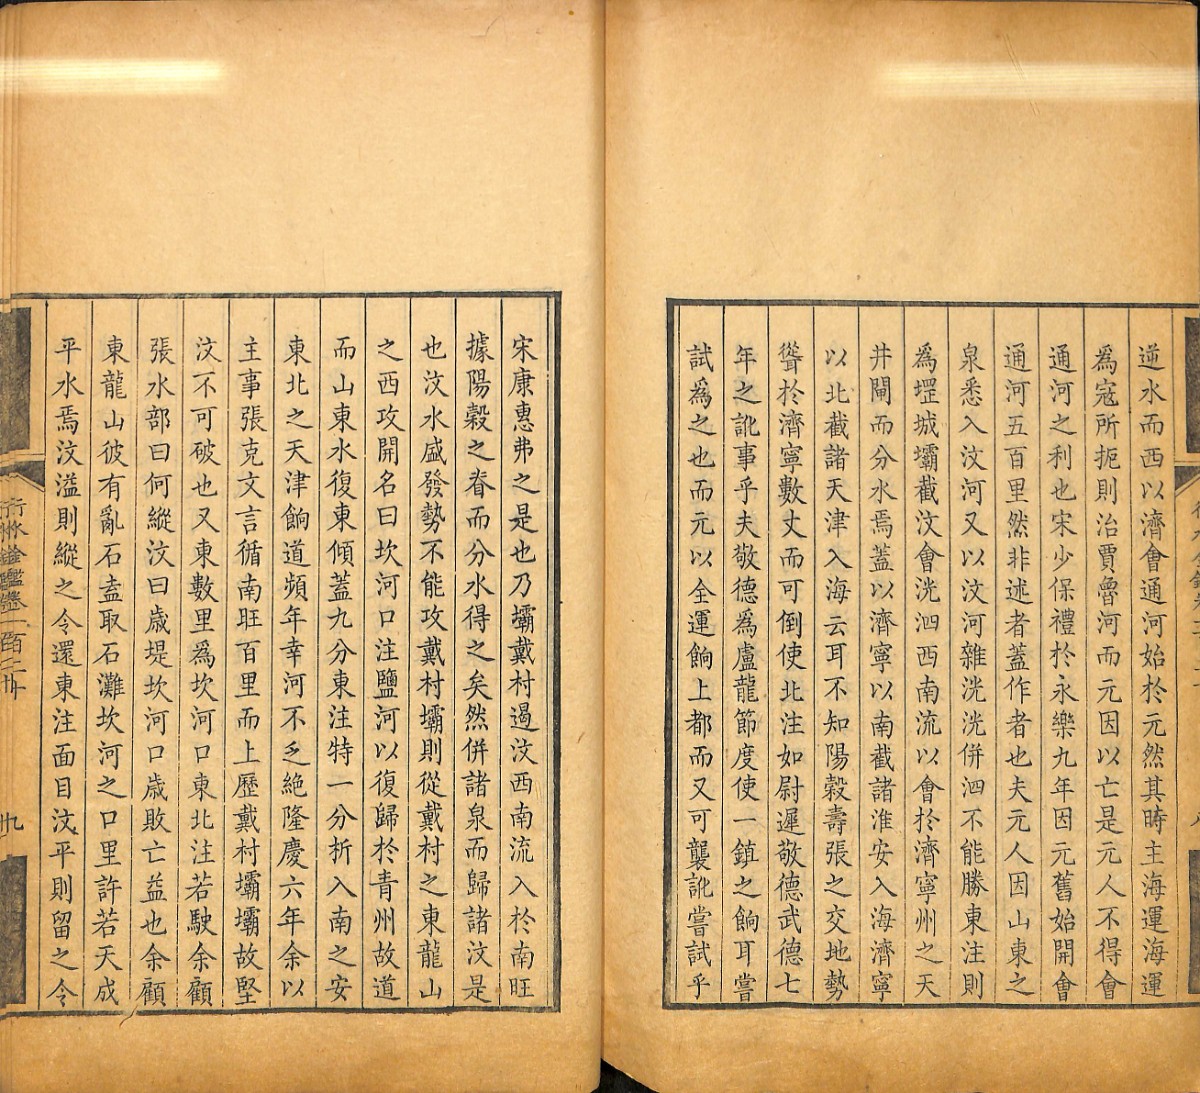 逆水而西以濟會通河始於元然其時主海運海運
為寇所扼則治賈魯河而元因以亡是元人不得會
通河之利也宋少保禮於永樂九年因元舊始開會
通河五百里然非述者蓋作者也夫元人因山東之
泉悉入汶河又以汶河雜洸洸併泗不能勝東注則
為堽城壩截汶會洸泗西南流以會於濟寧州之天
井閘而分水焉蓋以濟寧以南截諸淮安入海濟寧
以北截諸天津入海云耳不知陽穀壽張之交地勢
聳於濟寧數丈而可倒使北注如尉遲敬德武德七
年之訛事乎夫敬德為盧龍節度使一鎮之餉耳嘗
試為之也而元以全運餉上都而又可襲訛嘗試乎
宋康惠弗之是也乃壩戴村遏汶西南流入於南旺
據陽穀之脊而分水得之矣然併諸泉而歸諸汶是
也汶水盛發勢不能攻戴村壩則從戴村之東龍山
之西攻開名曰坎河口注鹽河以復歸於青州故道
而山東水復東傾蓋九分東注特一分折入南之安
東北之天津餉道頻年幸河不乏絕隆慶六年余以
主事張克文言循南旺百里而上歷戴村壩壩故堅
汶不可破也又東數里為坎河口東北注若駛余顧
張水部曰何縱汶曰歲堤坎河口歲敗亡益也余顧
東龍山彼有亂石盍取石灘坎河之口里許若天成
平水焉汶溢則縱之令還東注面目汶平則留之令
行水金鑑卷一百二十
九